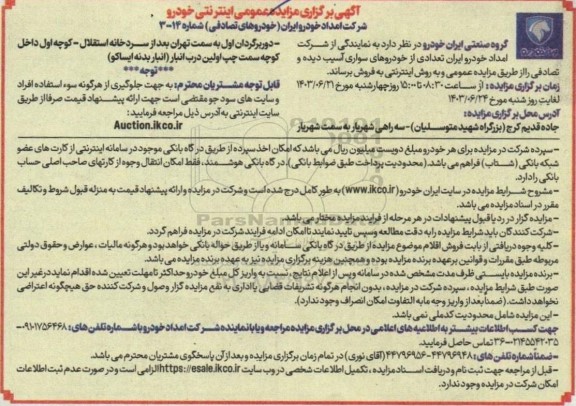 آگهی برگزاری مزایده عمومی اینترنتی خودرو
شرکت امداد خودرو ایران (خودروهای تصادفی) شماره ۱۴-۳
گروه صنعتی ایران خودرو در نظر دارد به نمایندگی از شرکت
امداد خودرو ایران تعدادی از خودروهای سواری آسیب دیده و
تصادفی را از طریق مزایده عمومی و به روش اینترنتی به فروش برساند.
زمان برگزاری مزایده: از ساعت ۰۸:۳۰ تا ۱۵:۰۰ روز چهارشنبه مورخ ۱۴۰۳/۰۶/۲۱
لغایت روز شنبه مورخ ۱۴۰۳/۰۶/۲۴
آدرس محل برگزاری مزایده:
جاده قدیم کرج (بزرگراه شهید متوسلیان) - سه راهی شهریار به سمت شهریار
- دوربرگردان اول به سمت تهران بعد از سردخانه استقلال - کوچه اول داخل
کوچه سمت چپ اولین درب انبار (انبار بدنه ایساکو)
***توجه***
قابل توجه مشتریان محترم: به جهت جلوگیری از هرگونه سوء استفاده افراد
و سایت های سود جو مقتضی است جهت ارائه پیشنهاد قیمت صرفا از طریق
سایت اینترنتی به آدرس ذیل مراجعه فرمایید:
Auction.ikco.ir
- سپرده شرکت در مزایده برای هر خودرو مبلغ دویست میلیون ریال می باشد که امکان اخذ سپرده از طریق درگاه بانکی موجود در سامانه اینترنتی از کارت های عضو
شبکه بانکی (شتاب) فراهم می باشد. (محدودیت پرداخت طبق ضوابط بانکی). درگاه بانکی هوشمند، فقط امکان انتقال وجوه از کارتهای صاحب اصلی حساب
بانکی را دارد.
- مشروح شرایط مزایده در سایت ایران خودرو (www.ikco.ir) به طور کامل درج شده است و شرکت در مزایده و ارائه پیشنهاد قیمت به منزله قبول شروط و تکالیف
مقرر در اسناد مزایده می باشد.
- مزایده گزار در رد یا قبول پیشنهادات در هر مرحله از فرایند مزایده مختار می باشد.
- شرکت کنندگان باید شرایط مزایده را به دقت مطالعه و سپس تایید نمایند تا امکان ادامه فرایند شرکت در مزایده فراهم گردد.
- کلیه وجوه دریافتی از بابت فروش اقلام موضوع مزایده از طریق درگاه بانکی سامانه و یا از طریق حواله بانکی خواهد بود و هرگونه مالیات، عوارض و حقوق دولتی
مربوطه طبق مقررات و قوانین بر عهده برنده مزایده بوده و همچنین هزینه برگزاری مزایده نیز به عهده برنده مزایده می باشد.
- برنده مزایده بایستی ظرف مدت مشخص شده در سامانه و پس از اعلام نتایج، نسبت به واریز کل مبلغ خودرو حداکثر تا مهلت تعیین شده اقدام نماید در غیر این
صورت طبق شرایط مزایده، سپرده شرکت در مزایده، بدون انجام هرگونه تشریفات قضایی یا اداری به نفع مزایده گزار وصول و شرکت کننده حق هیچگونه اعتراضی
نخواهد داشت. (ضمنا بعد از واریز وجه مابه التفاوت امکان انصراف وجود ندارد).
- این مزایده شامل محدودیت کد ملی نمی باشد.
جهت کسب اطلاعات بیشتر به اطلاعیه های اعلامی در محل برگزاری مزایده مراجعه و یا با نماینده شرکت امداد خودرو با شماره تلفن های: ۰۹۱۰۱۷۵۶۴۶۸-
۳۶-۰۲۱۴۵۵۴۲۰۳۵ تماس حاصل فرمایید.
- ضمنا شماره تلفن های: ۴۴۷۹۶۹۴۸-۴۴۷۹۶۹۵۶ (آقای نوری) در تمام زمان برگزاری مزایده و بعد از آن پاسخگوی مشتریان محترم می باشد.
- قبل از مراجعه جهت ثبت نام و دریافت اسناد مزایده، تکمیل اطلاعات شخصی در وب سایت https://esale.ikco.ir الزامی است و در صورت عدم ثبت اطلاعات
امکان شرکت در مزایده وجود ندارد.